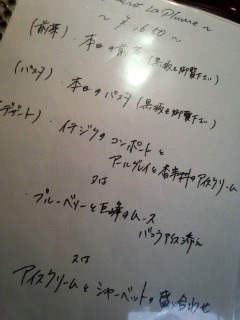 La Plume ~
~ ¥1650 ~
(前菜)・本日の前菜(黒板を御覧下さい)
(パスタ)・本日のパスタ(黒板を御覧下さい)
デザート)・イチジクのコンポートと
アールグレイと香辛料のアイスクリーム
又は
ブルーベリーと巨峰のムース
バニラアイス添え
又は
アイスクリームとシャーベットの盛り合わせ